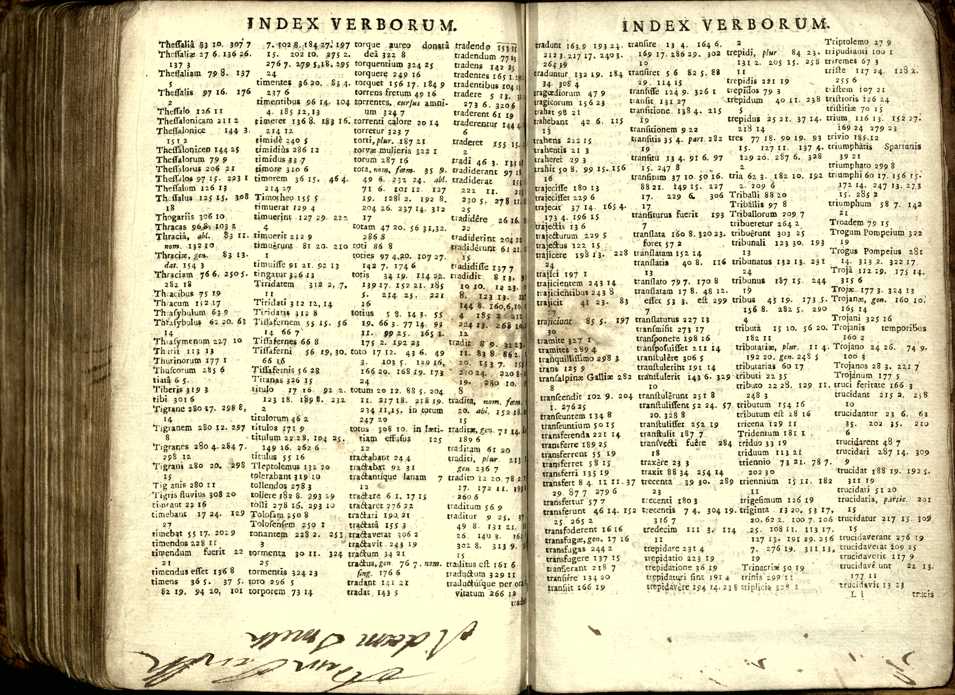 INDEX VERBORUM.
Thessaliâ 83 10. 307 7
Thessaliæ 27 6. 136 26.
137 3
Thessaliam 79 8. 137
24
Thessalis 97 16. 176
2
Thessalo 126 11
Thessalonicam 211 2
Thessalonice 144 3.
151 2
Thessalonicen 144 25
Thessalorum 79 9
Thessalorus 206 21
Thessalos 97 15. 293 1
Thessalum 126 13
Thessalus 125 15. 308
18
Thogariis 306 10
Thracas 96 8. 103 2
Thraciâ, abl. 83 11.
nom. 132 10
Thraciæ, gen. 83 13.
dat. 154 3
Thraciam 76 6. 250 5.
282 18
Thracibus 75 19
Thracum 112 17
Thrasybulum 63 9
Thrasybulus 62 20. 63
14
Thrasymenum 227 10
Thurii 113 13
Thurinorum 177 1
Thuscorum 285 6
tiarâ 6 5.
Tiberis 319 3
tibi 301 6
Tigrane 280 17. 298 8,
14
Tigranem 280 12. 297
8
Tigranes 280 4. 284 7.
298 12
Tigrani 280 20. 298
15
Tigranis 280 11
Tigris fluvius 308 20
timeant 22 16
timebant 17 24. 129
27
timebat 55 17. 202 9
timendus 228 11
timendum fuerit 22
21
timendus esset 136 8
timens 36 5. 37 5.
82 19. 94 20, 101
7. 102 8. 184 27. 197
15. 202 10. 275 2.
276 7. 279 5,18, 295
24
timentes 36 20. 83 4.
237 6
timentibus 96 14. 104
4. 185 12,13
timeret 136 8. 183 16.
214 12
timidè 240 5
timidiùs 286 12
timidus 33 7
timore 310 6
timorem 36 15. 46 4.
214 27
Timotheo 155 5
timuerat 129 4
timuerint 127 29. 222
4
timuerit 212 9
timuêrunt 81 20. 210
1
timuisse 91 21. 92 13
tingatur 326 13
Tiridatem 312 2,7,
15
Tiridati 312 12, 14
Tiridatis 312 8
Tissafernem 55 15. 56
14. 66 7
Tissafernes 66 8
Tissaferni 56 19, 30.
66 16
Tissafernis 56 28
Titanas 326 35
titulo 17 16. 92 2.
123 18. 189 8. 232
2
titulorum 46 2
titulos 171 9
titulum 22 28. 194 25.
149 16. 262 6
titulus 55 16
Tleptolemus 132 20
tolerabant 319 10
tollendos 278 3
tollere 182 8. 293 29
tolli 278 16. 293 10
Tolosam 250 8
Tolosensem 250 1
tonantem 228 2. 253
3
tormenta 30 11. 324
25
tormentis 324 23
toto 296 5
torporem 73 14
torque aureo donatâ
deâ 322 8
torquentium 324 25
torquere 249 16
torquet 156 17. 184 9
torrens fretum 49 16
torrentes, cursus amni-
um 324 7
torrenti calore 20 14
torretur 323 7
torti, plur. 187 21
torvæ mulieria 322 1
torum 287 16
tota, nom, fœm. 35 9.
49 6. 232 24. abl.
71 6. 101 12. 127
19. 128 2. 192 8.
204 26. 237 14. 312
17
totam 47 20. 56 31,32.
286 5
toti 86 8
toties 97 4,20. 107 27.
142 7. 174 6
totis 34 19. 114 22.
139 17. 152 21. 185
5. 214 25. 221
16
totius 5 8. 14 3. 55
19. 66 3. 77 14. 93
11. 99 25. 165 3.
175 2. 192 23
toto 17 12. 43 6. 49
3. 103 5. 129 16,
166 20. 168 19. 173
24
totum 20 12. 88 5. 204
11. 217 18. 218 19.
234 11,15, in totum
247 20
totus 308 10. in læti-
tiam effusus 125
12
tractabant 24 4
tractabat 92 31
tractantique lanam 7
12
tractare 6 1. 17 15
tractaret 276 22
tractari 190 21
tractatâ 155 3
tractaverat 306 2
tractavit 243 19
tractum 34 21
tractus, gen 76 7. nom.
sing. 176 6
tradant 141 21
tradat. 143 5
tradendo 153 11
tradendum 77 15
tradens 142 25
tradentes 165 1.
tradentibus 104 11
tradere 5 13.
273 6. 320 6
traderent 61 19
traderentur 144 4
6
traderet 155 15.
2
tradi 46 3. 131
tradiderant 97 18
tradiderat 155
222 11.
230 5. 278 11
25
tradidêre 26 16.
9
tradiderint 204 21
tradidêrunt 61 21.
15
tradidisse 137 7
tradidit 8 13.
10 10. 12 23.
8. 123 13.
144 8. 160,6,10
4. 185 2
224 13. 268 10
tradit 8 9. 31 23.
11. 83 8 86 2.
20. 153 7.
210 24. 220 8
19. 280 10.
8
tradita, nom, fœm.
20. abl, 152 18.
11
traditæ, gen, 71 14.
189 6
traditam 61 20
traditi, plur. 213
gen 236 7
tradito 12 20. 78 27.
17. 172 11. 183
260 6
traditum 56 9
traditur 9 25.
49 8. 131 21.
26. 140 3. 16
302 8. 313 9.
15
traditus est 161 6
traductum 329 11
traductusque per ora
vitatum 266 12
tradu
INDEX VERBORUM.
tradunt 163 9 193 24.
212 3. 217 17. 240 3.
264 39
traduntur, 132 19. 184
34. 308 4
tragœdiarum 47 9
tragicorum 156 23
trabat 98 21
trahebant 42 6. 115
13
trabens 212 15
trahentis 21 3
traheret 29 3
trahit 50 8. 99 15. 156
16
trajecisse 180 13
trajecisset 229 6
trajecit 37 14. 165 4.
173 4. 196 15
trajectis 13 6
trajecturum 229 5
trajectus 122 15
trajicere 198 13. 228
24
trajici 197 1
trajicientem 243 14
trajicientibus 243 8
trajicit 41 23. 83
27
trajiciunt 85 5. 197
2
tramite 327 1
tramites 289 4
tranquillissimo 298 3
trans 125 9
transalpinæ Galliæ 282
8
transcendit 102 9. 204
1. 276 25
transeuntem 134 8
transeuntium 50 15
transferenda 221 14
transferre 189 25
transferrem 55 19
transferret 58 15
transferri 135 19
transfert 8 4. 11 11. 37
29. 87 7 279 6
transfertur 57 7
transferunt 46 14. 152
25. 265 2
transfoderent 16 16
transfugæ, gen, 17 16
transfugas 244 2
transfugere 137 15
transferant 218 7
transire 134 20
transiit 166 19
transire 13 4. 164 6.
169 17. 286 29. 302
2
transiret 5 6 82 5. 88
29. 114 15
transisse 124 9. 326 1
transit 131 27
transitione 138 4. 215
15
transitionem 9 22
transitis 35 4. part 282
12
transitu 13 4. 91 6. 97
15. 247 8
transitum 37 10. 50 16.
88 21. 149 15. 227
17. 229 6. 306
17
transiturus fuerit 193
3
translata 160 8. 320 23.
foret 57 2
translatam 152 14
translatio 40 8. 116
13
translato 79 7. 170 8
translatum 17 8. 48 12.
esset 53 3. est 299
9
translaturus 227 13
transmisit 273 17
transponere 198 16
transposuisset 211 14
transtulêre 306 5
transtulerint 191 14
transtulerit 143 6. 329
10
transtulêrunt 251 8
transtulissent 52 24. 57
20. 328 8
transtulisset 252 19
transtulit 187 7
transvecti fuêre 284
18
traxêre 23 3
traxit 88 34 254 14
trecenta 39 30. 289
23
trecenti 180 3
trecentis 7 4. 304 19.
316 7
tredecim 111 3. 174
14
trepidare 231 4
trepidatio 223 19
trepidatione 36 19
trepidaturi sint 191 4
trepidavere 194 14. 218
2
trepidi, plur 84 23.
131 2. 205 15. 258
11
trepidis 221 19
trepidos 79 3
trepidum 40 11. 238
5
trepidus 25 21. 37 14.
218 14
tres 77 18. 90 19. 93
15. 127 11. 137 4.
129 20. 287 6. 328
4
tria 62 3. 182 10. 192
2. 209 6
Triballi 88 20
Triballis 97 8
Triballorum 209 7
tribueretur 264 2
tribuêrunt 303 25
tribunali 123 30. 193
19
tribunatus 132 13. 231
24
tribunus 187 15. 244
6
tribus 45 19. 173 5.
136 8. 282 5. 290
14
tributâ 15 10. 56 20.
182 11
tributariæ, plur, 11 4.
192 20. gen. 248 5
tributarias 60 17
tributi 22 35
tributo 22 28. 129 11.
248 3
tributum 154 16
tributum est 28 16
tricena 129 11
Tridentum 181 1
triduo 33 19
triduum 113 21
triennio 73 21. 78 7.
202 30
triennium 15 11. 182
11
trigesimum 126 19
triginta 13 20. 53 17,
20. 62 2. 100 7. 106
25. 108 11. 113 17.
127 13. 191 19. 256
7, 276 19. 311 13,
15
Trinacriæ 50 19
trinis 299 11
triplicia 328 1
Triptolemo 27 9
tripudianti 100 1
triremes 67 3
triste 117 24. 128 2.
255 6
tristem 107 21
tristioris 126 24
tristitiæ 70 15
trium, 116 13. 152 27.
169 24 279 23
trivio 185 12
triumphatis Spartanis
39 21
triumphato 299 8
triumphi 60 17. 156 15.
172 14. 247 13. 273
15. 285 3
triumphum 58 7. 142
21
Troadem 79 15
Trogum Pompeium 322
19
Trogus Pompeius 281
14. 313 2. 322 17
Trojâ 112 19. 175 14.
316 5
Trojæ 177 3. 324 13
Trojanæ, gen. 160 10.
165 14
Trojani 325 16
Trojanis temporibus
160 2
Trojano 24 26. 74 9.
100 3
Trojanos 28 3. 221 7
Trojanum 177 5
truci feritate 166 3
trucidant 215 2. 258
10
trucidantur 23 6. 63
35. 202 35. 210
6
trucidarent 48 7
trucidari 287 14. 309
9
trucidat 188 19. 192 5.
311 21
trucidati 51 20
trucidatis, partic. 201
15
trucidatur 217 15. 309
19
trucidaverant 276 19
trucidaverat 209 25
trucidaveris 117 9
trucidavêrunt 22 13.
177 11
trucidavit 13 23
L l
trucis
Adam Smith
Adam Smith